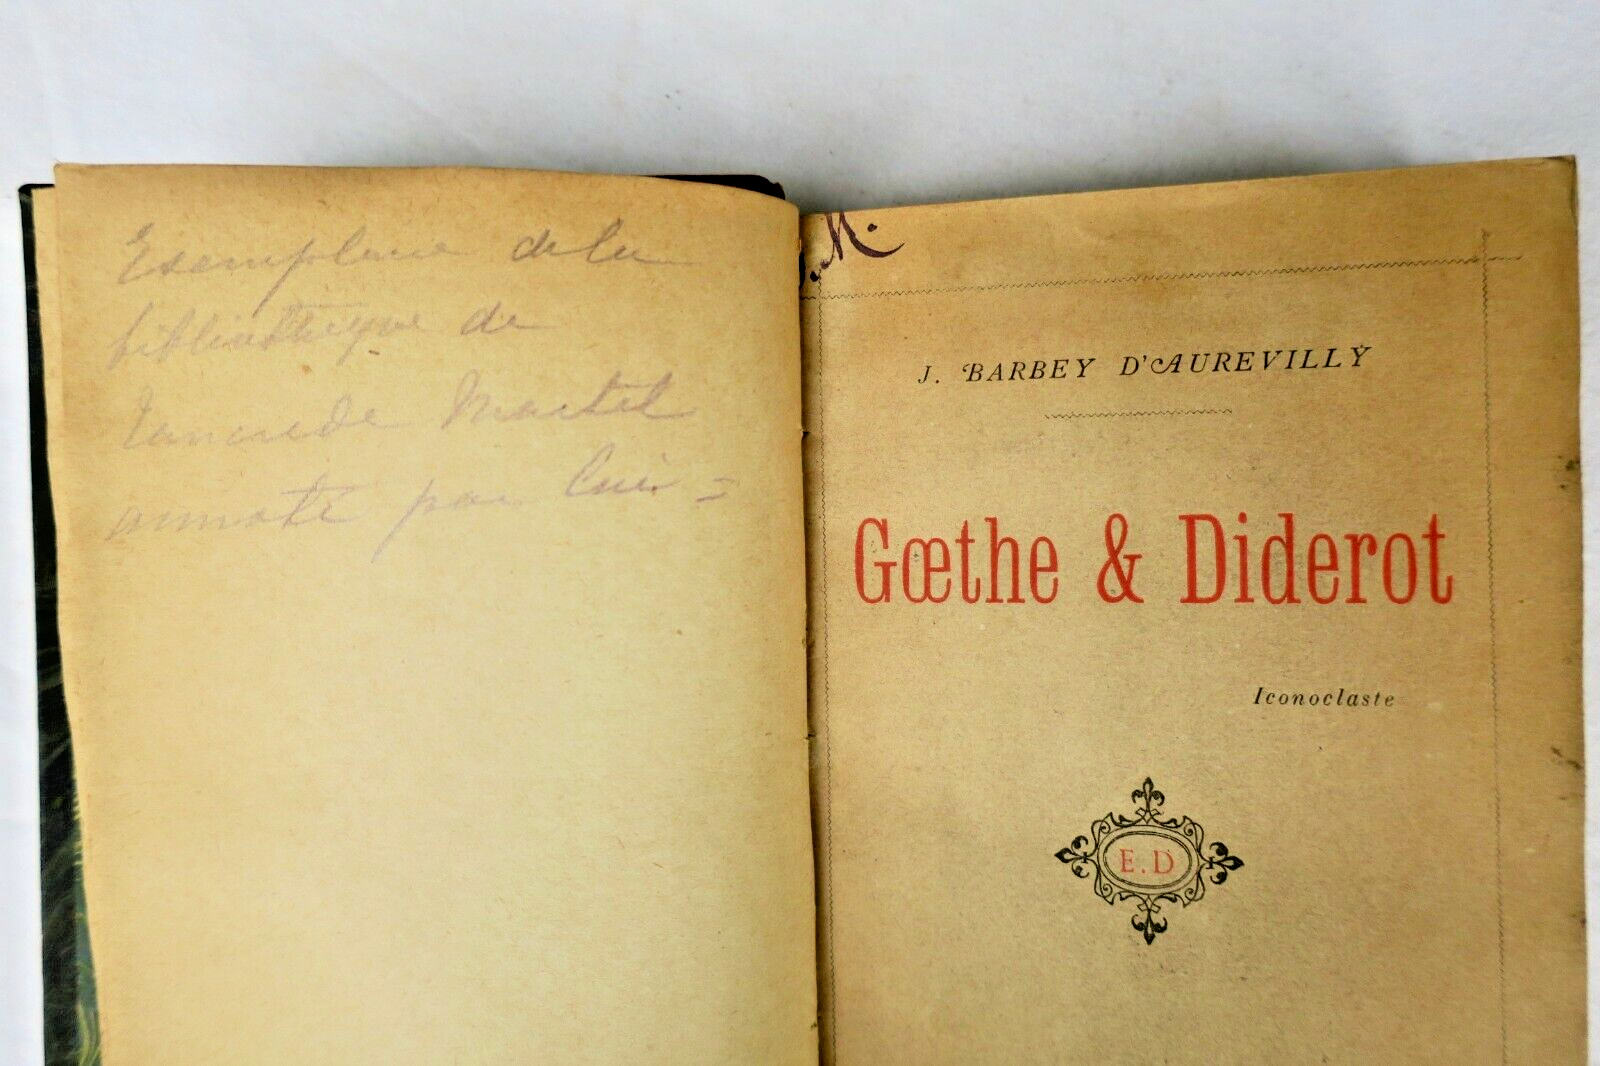 Exemplaire de la
bibliothèque de
Tancrède Martel
annoté par lui =
.M.
J. BARBEY D'AUREVILLY
Gœthe & Diderot
Iconoclaste
E.D